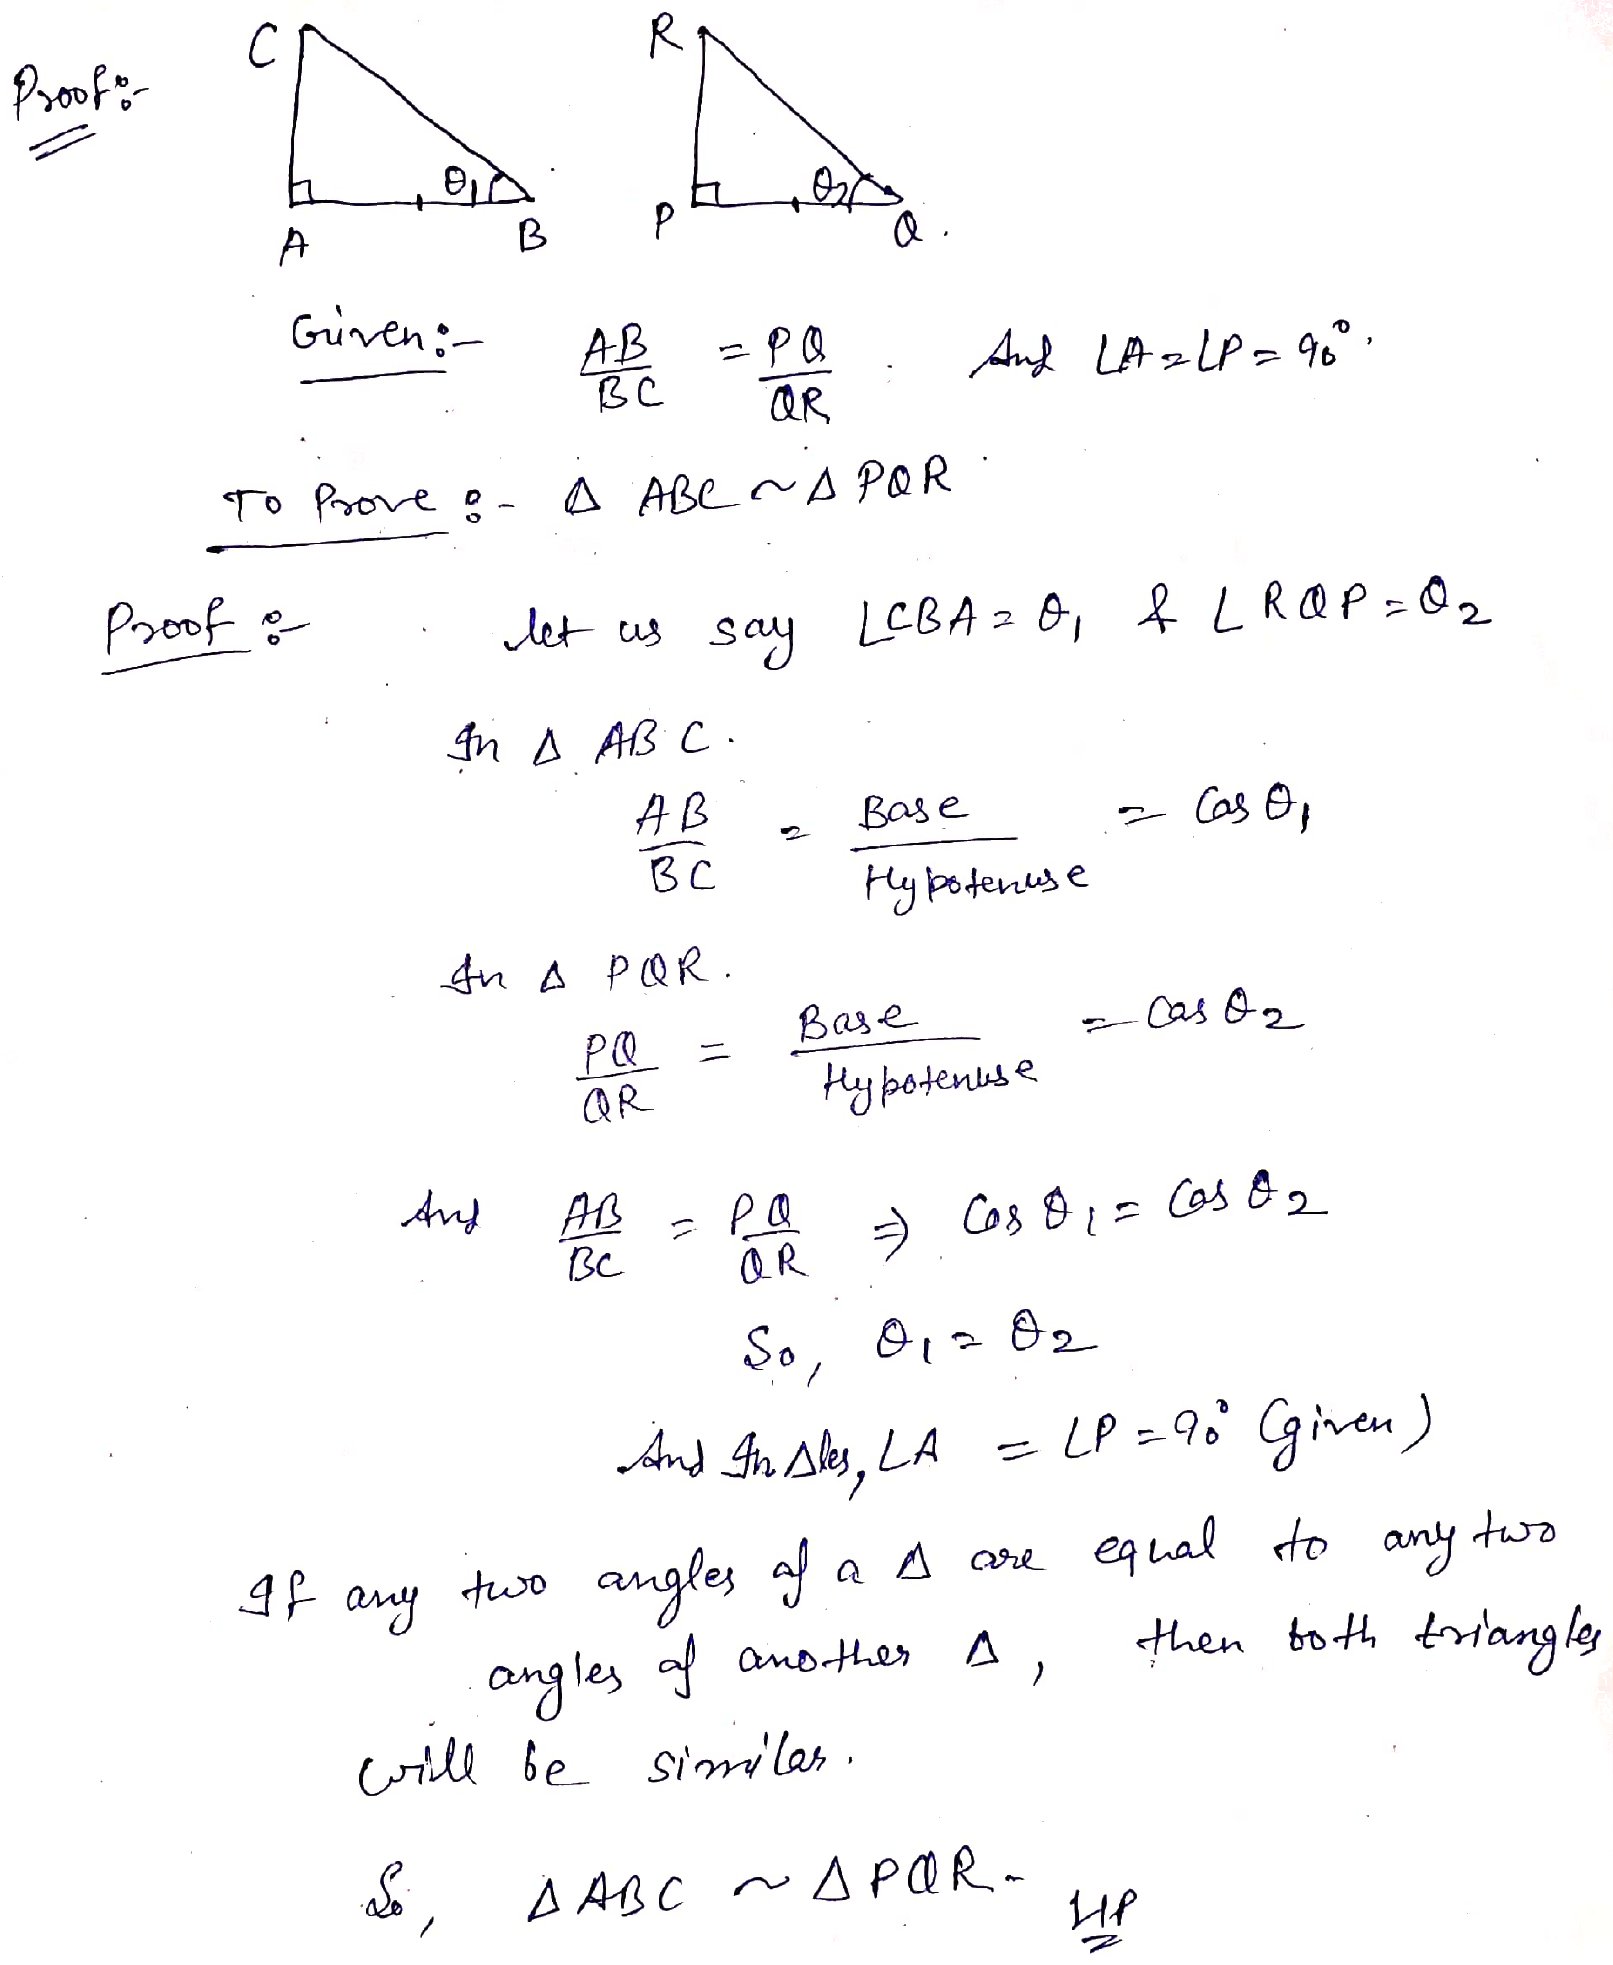 Proof:-
C R
θ1 θ2
A B P Q.
Given:- AB/BC = PQ/QR. And ∠A = ∠P = 90°.
To Prove:- Δ ABC ~ Δ PQR
Proof:- let us say ∠CBA = θ1 & ∠RQP = θ2
In Δ ABC.
AB/BC = Base/Hypotenuse = Cos θ1
In Δ PQR.
PQ/QR = Base/Hypotenuse = Cos θ2
And AB/BC = PQ/QR ⇒ Cos θ1 = Cos θ2
So, θ1 = θ2
And In Δles, ∠A = ∠P = 90° (given)
If any two angles of a Δ are equal to any two
angles of another Δ, then both triangles
will be similar.
So, Δ ABC ~ Δ PQR.
HP